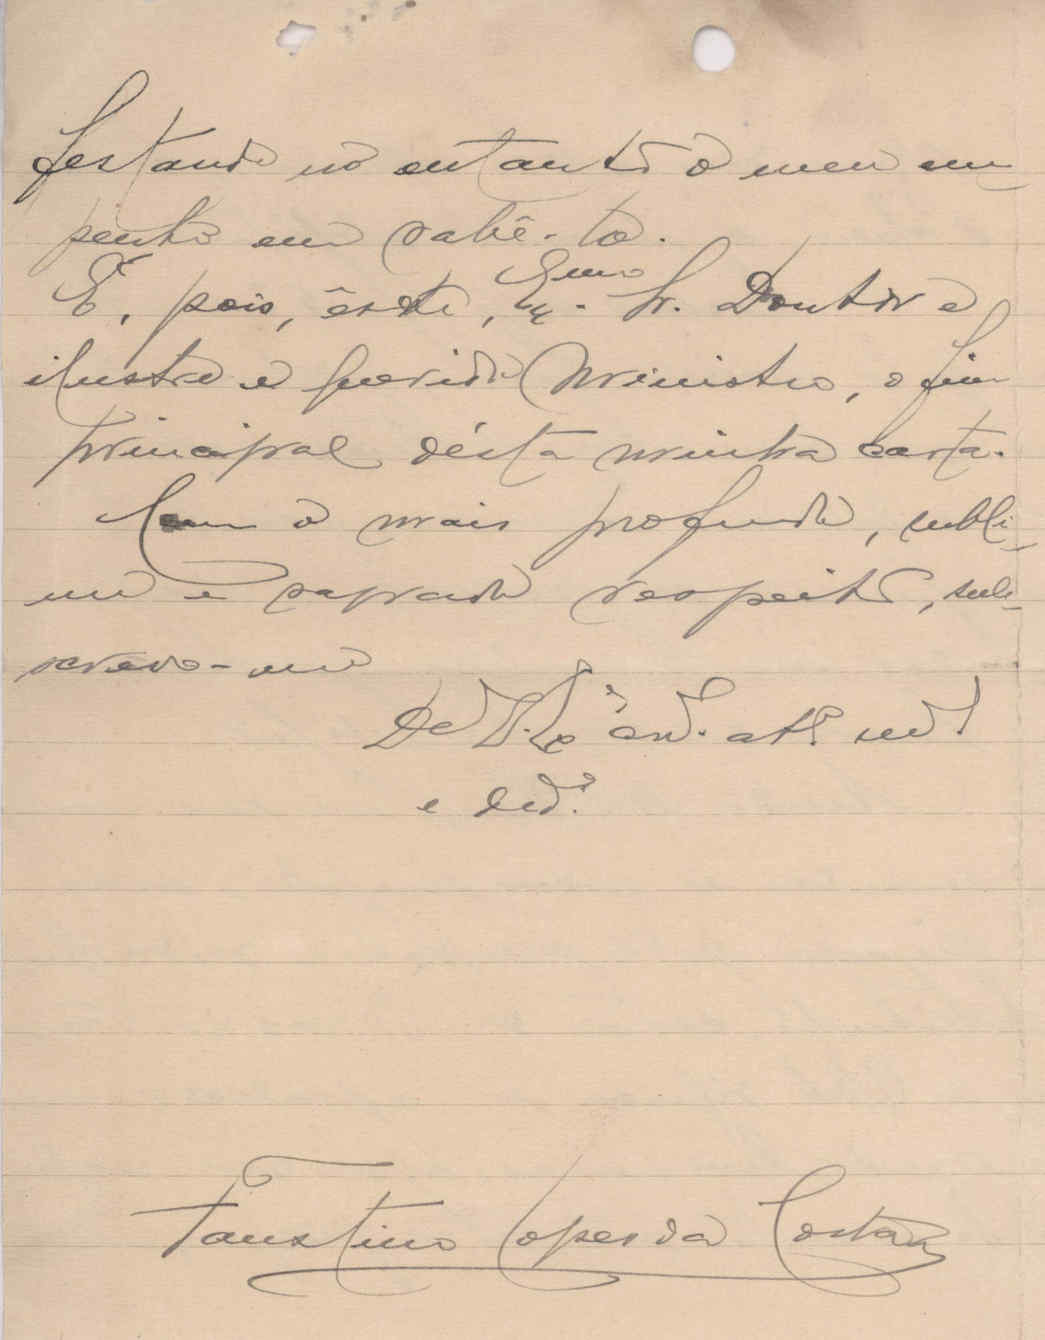 festando no entanto o meu em-
penho em sabê-lo.
É, pois, êste, Exmo. Sr. Doutor e
ilustre e querido Ministro, o fim
principal désta minha carta.
Com o mais profundo, subli-
me e sagrado respeito, subs-
crevo-me
De V. Exª. am.º att.º
e ded.º
Faustino Lopes da Costa